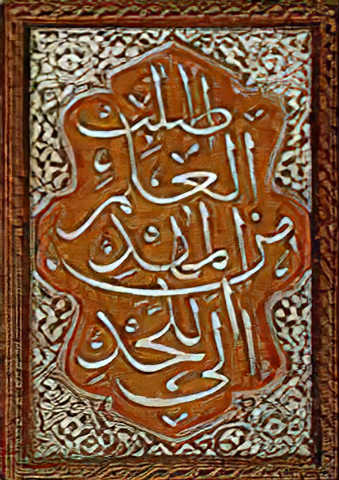 اطلب
العلم
من المهد
الى اللحد